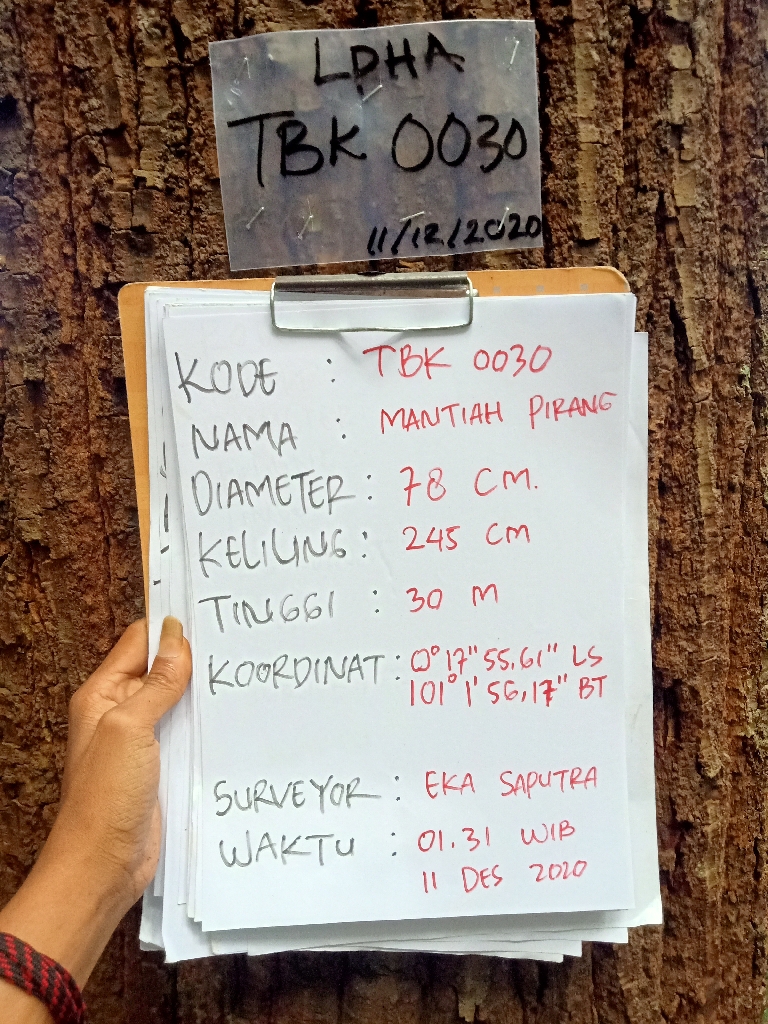 LDHA
TBK 0030
11/12/2020
KODE : TBK 0030
NAMA : MANTIAH PIRANG
DIAMETER : 78 CM.
KELILING : 245 CM
TINGGI : 30 M
KOORDINAT : 0° 17" 55,61" LS
101° 1' 56,17" BT
SURVEYOR : EKA SAPUTRA
WAKTU : 01.31 WIB
11 DES 2020